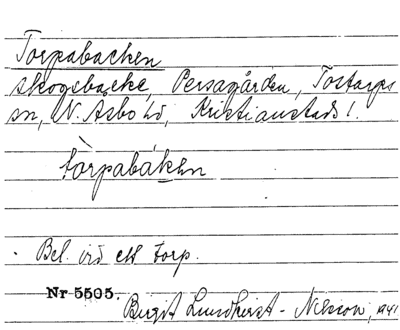 Torpabacken
skogsbacke, Persagården, Tostarps
sn, N. Åsbo hd, Kristianstads l.
tòrpabáken
Bel. vid ett torp.
Nr 5505.
Birgit Lundkvist - Nilsson, 1941